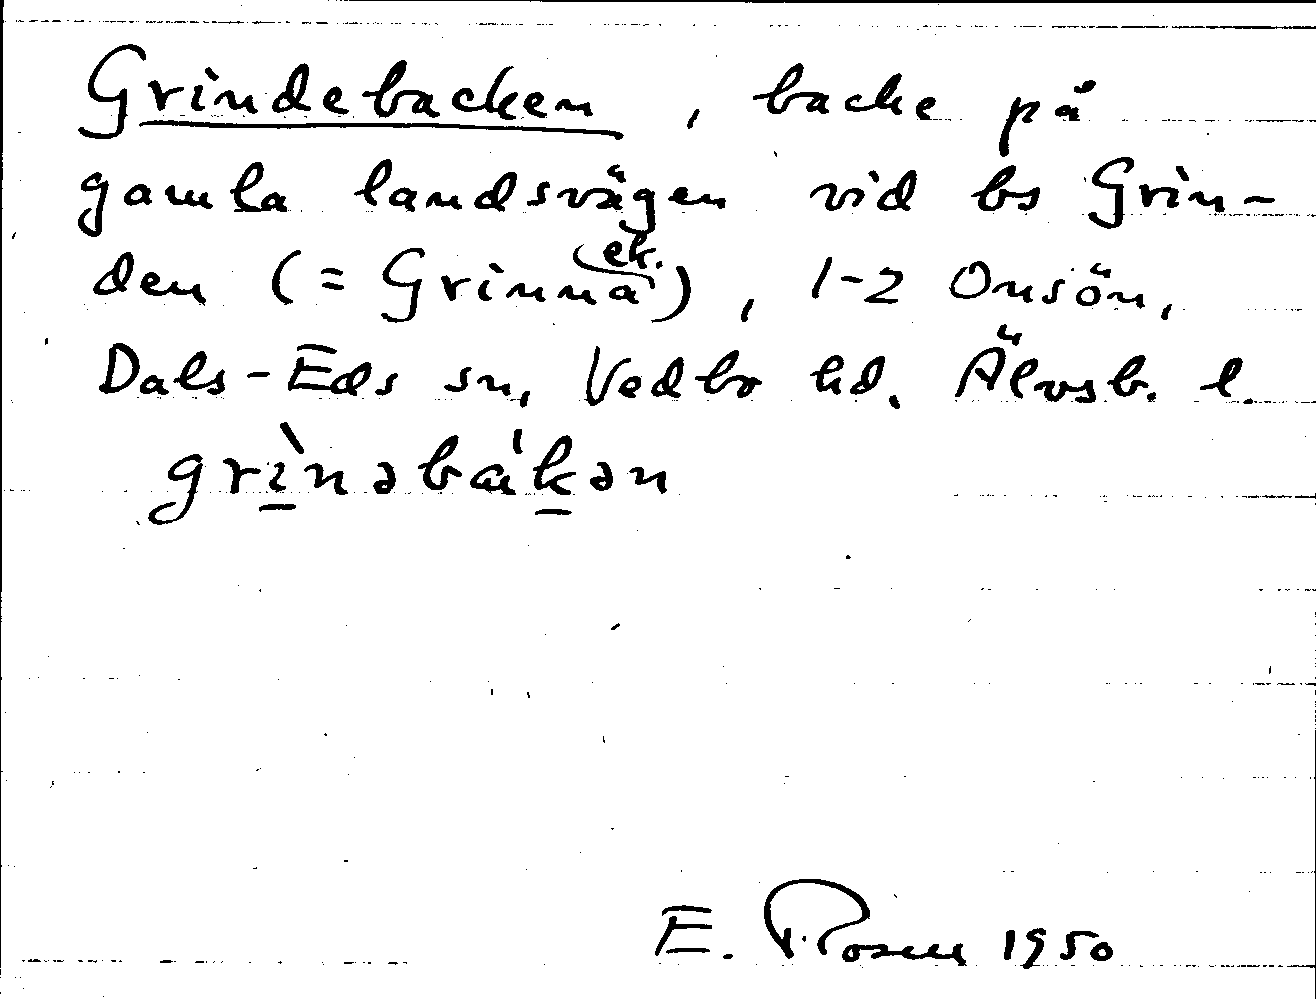 Grindebacken, backe på
gamla landsvägen vid bs Grin-
den (= Grinnä ek.), 1-2 Onsön,
Dals-Eds sn, Vedbo hd. Älvsb. l.
grı̀nəbàkən
E. Rosen 1950